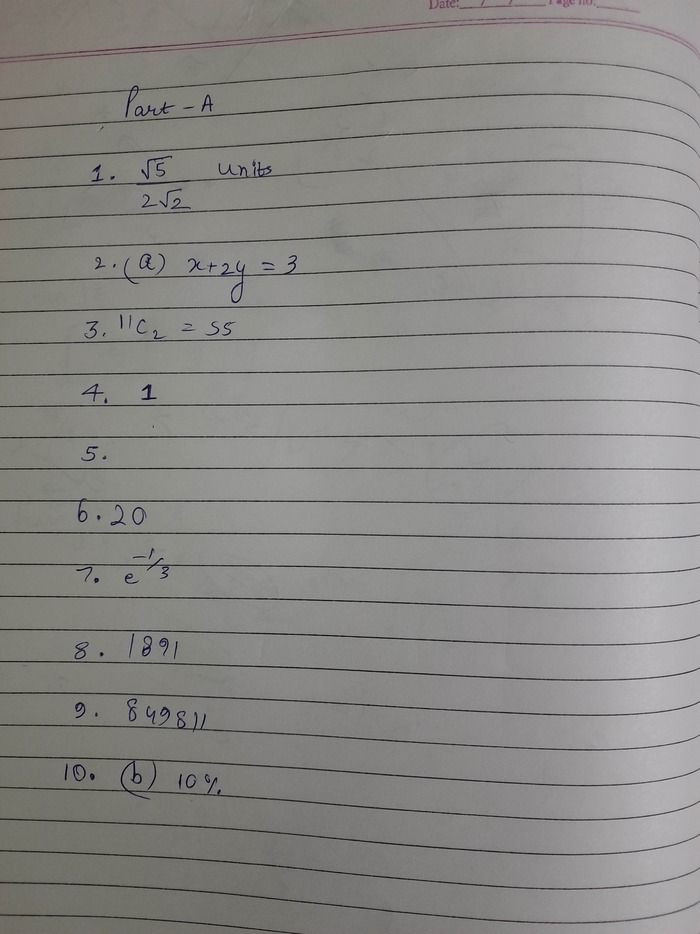 Date: / / Page no:
Part - A
1. √5/2√2 units
2. (a) x+2y = 3
3. ¹¹C₂ = 55
4. 1
5.
6. 20
7. e^-1/3
8. 1891
9. 849811
10. (b) 10%